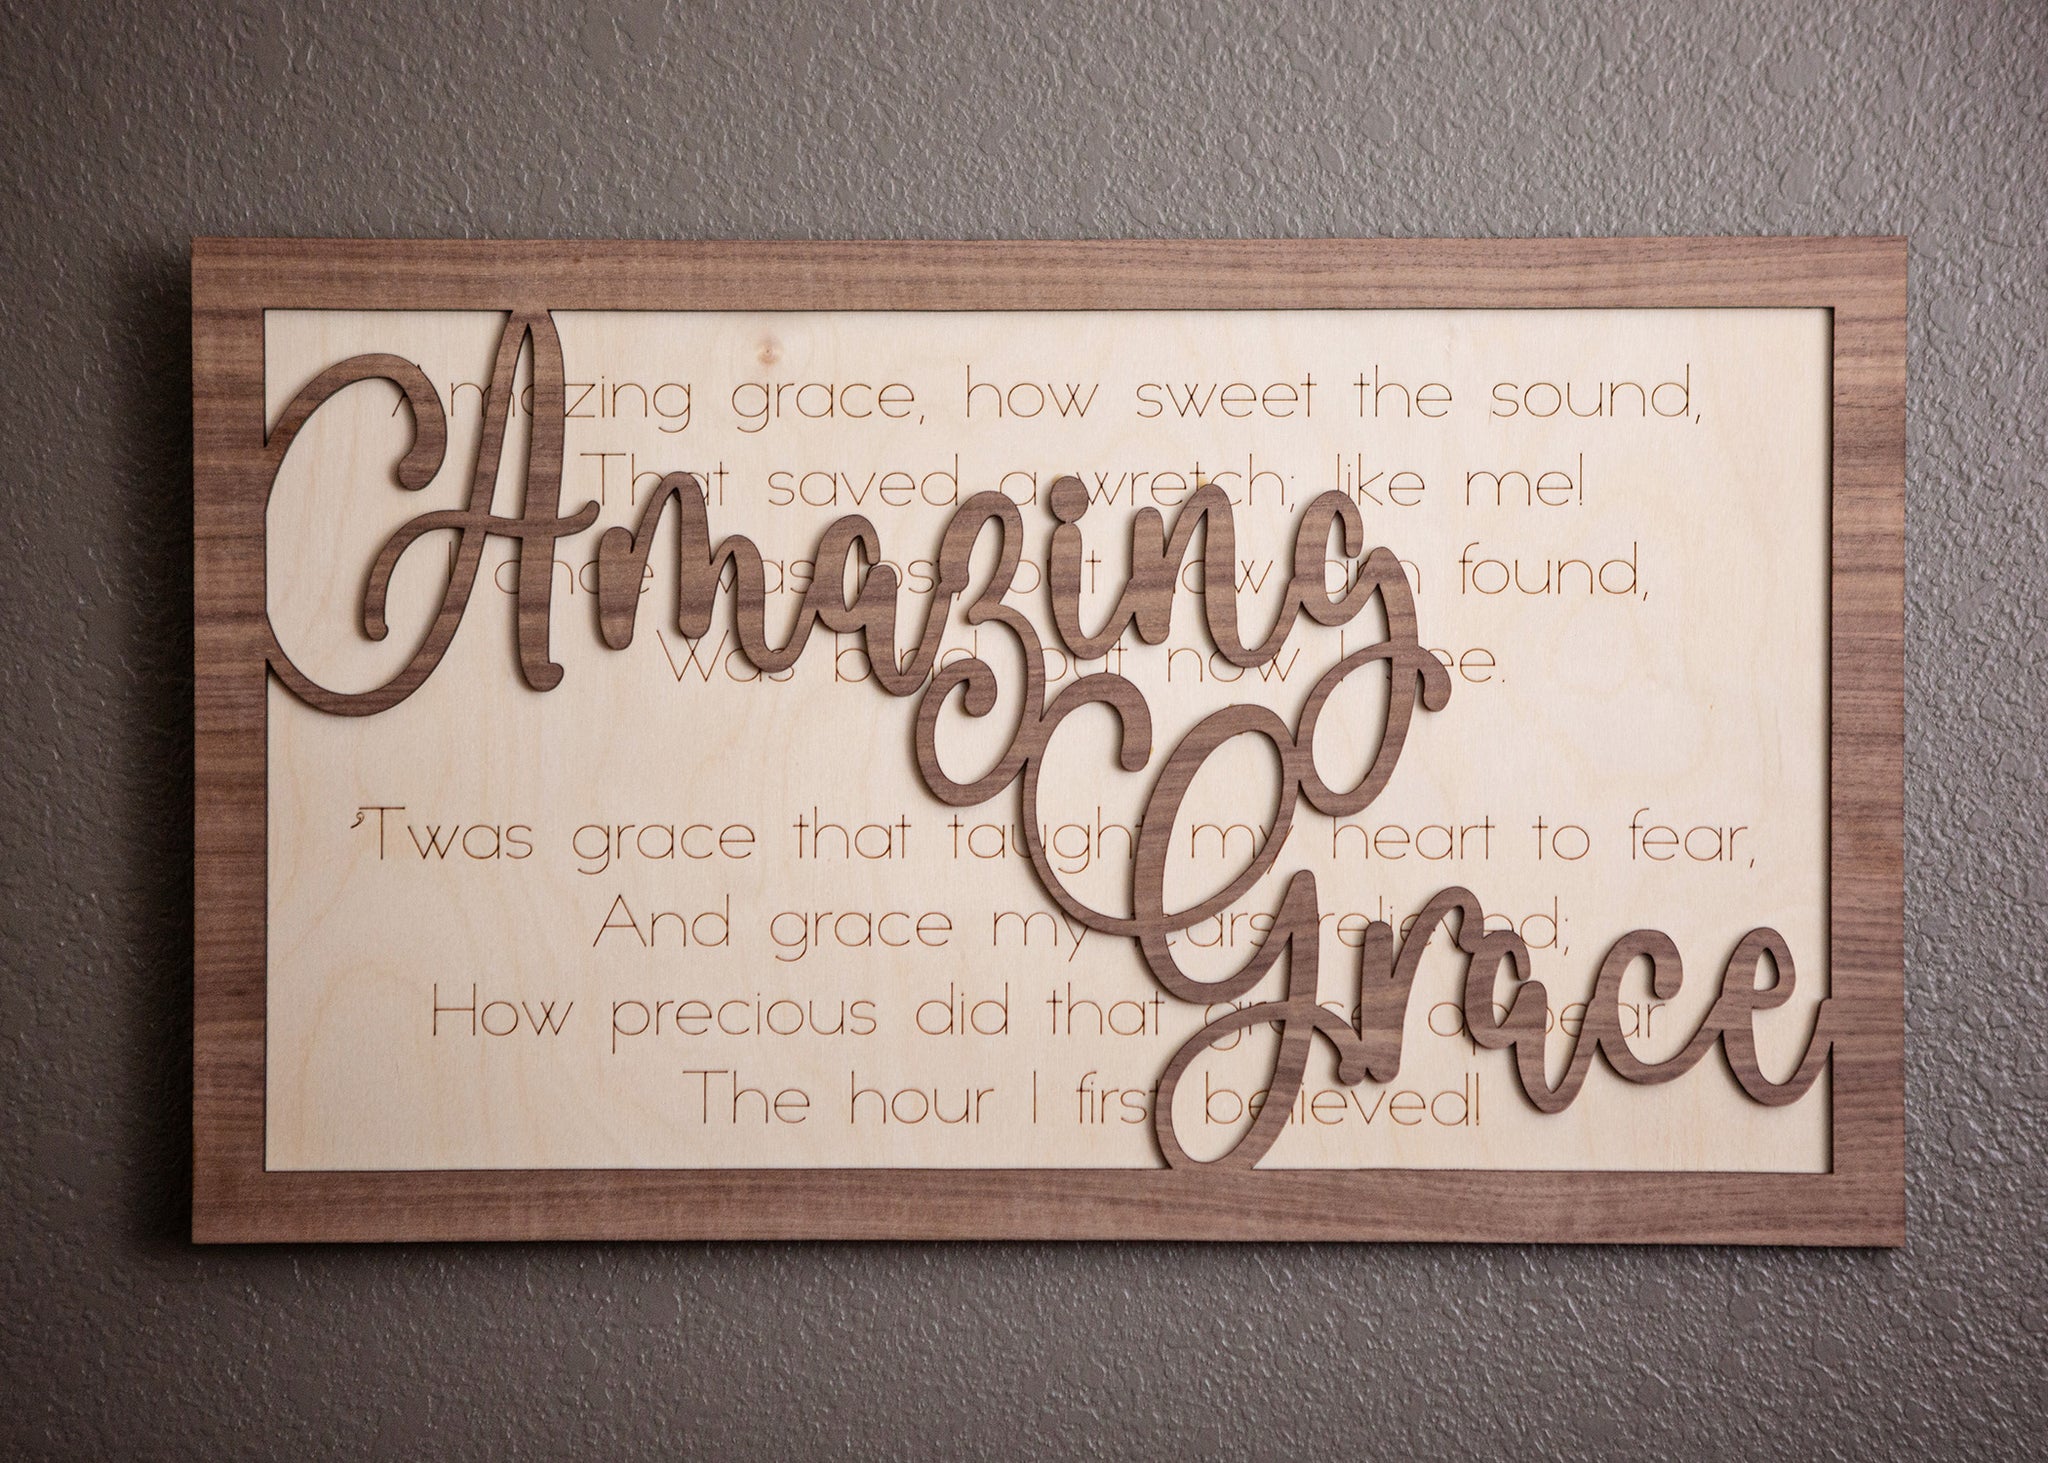 Amazing Grace
Amazing grace, how sweet the sound,
That saved a wretch; like me!
I once was lost, but now am found,
Was blind, but now I see.
’Twas grace that taught my heart to fear,
And grace my fears relieved;
How precious did that grace appear
The hour I first believed!